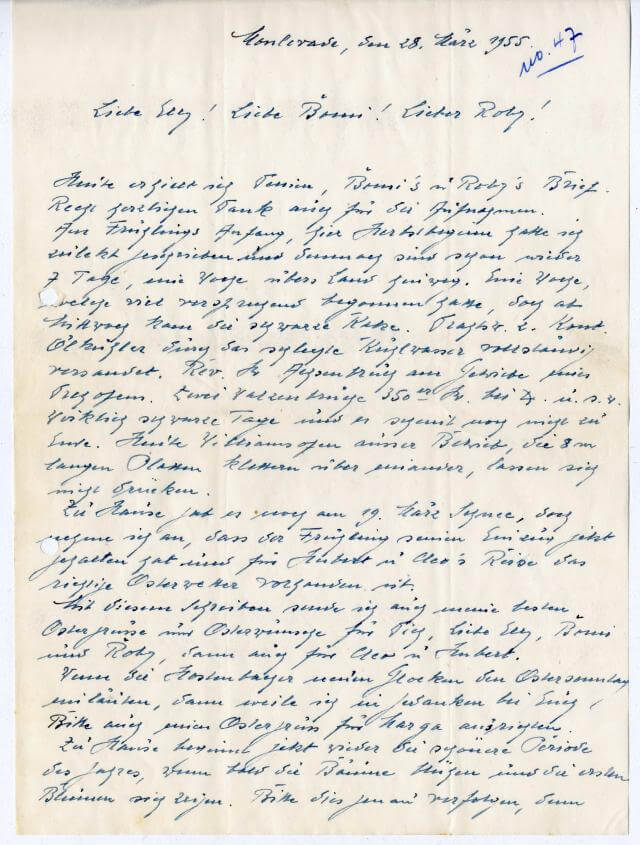 Monlevade, den 28. März 1955.
no. 47
Liebe Elly! Liebe Bömi! Lieber Roby!
Heute erhielt ich Deinen, Bömi's u Roby's Brief.
Recht herzlichen Dank auch für die Aufnahmen.
Am Frühlings Anfang, hier Herbstbeginn hatte ich
zuletzt geschrieben und demnach sind schon wieder
7 Tage, eine Woche übers Land hinweg. Eine Woche,
welche viel versprechend begonnen hatte, doch ab
Mittwoch kam die schwarze Katze. 2. Kont.
Ölkühler durch das schlechte Kühlwasser vollständig
versandet. Rev. Achsenbruch am Getriebe eines
Drehofens. Zwei Walzenbrüche 350er bei u.s.w.
Wirklich schwarze Tage und es scheint noch nicht zu
Ende. Heute Williamsofen ausser Betrieb, die 8 m
langen Platten klettern über einander, lassen sich
nicht drücken.
Zu Hause gab es noch am 19. März Schnee, doch
nehme ich an, dass der Frühling seinen Einzug jetzt
gehalten hat und für Hubert u Cleo's Reise das
richtige Osterwetter vorhanden ist.
Mit diesem Schreiben sende ich auch meine besten
Ostergrüsse und Osterwünsche für Dich, liebe Elly, Bömi
und Roby, dann auch für Cleo u Hubert.
Wenn die Hostenbacher neuen Glocken den Ostersonntag
einläuten, dann weile ich in Gedanken bei Euch!
Bitte auch einen Ostergruss für Marga ausrichten.
Zu Hause beginnt jetzt wieder die schönere Periode
des Jahres, wenn bald die Bäume blühen und die ersten
Blumen sich zeigen. Bitte dies genau verfolgen, denn